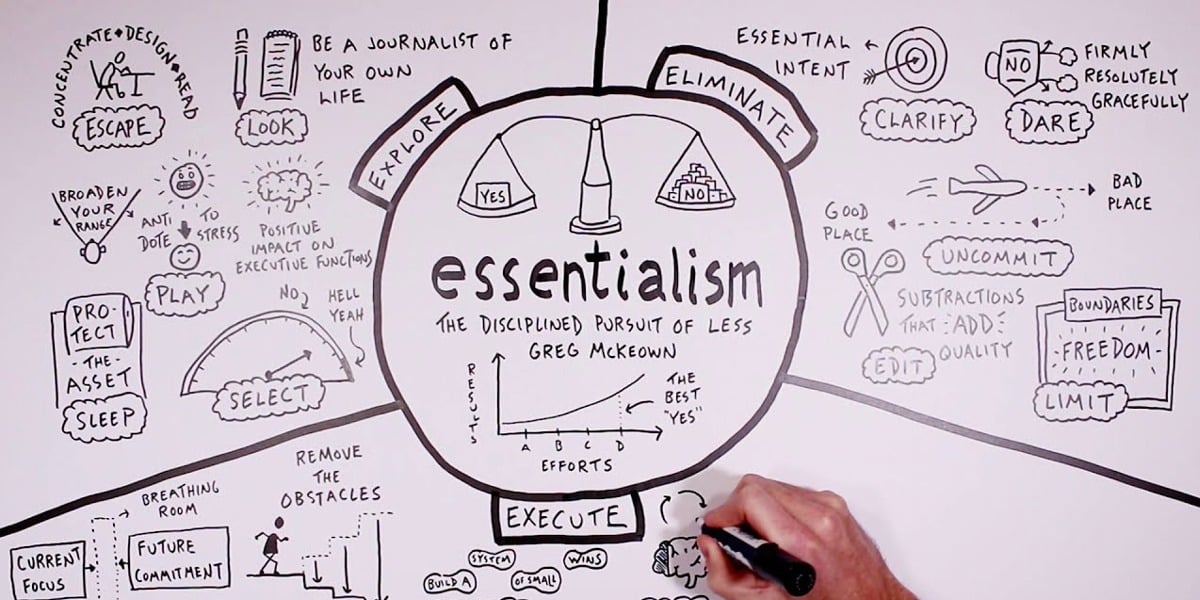 CONCENTRATE • DESIGN • READ
ESCAPE
BE A JOURNALIST OF
YOUR OWN
LIFE
LOOK
BROADEN
YOUR
RANGE
ANTI
DOTE
TO
STRESS
PLAY
POSITIVE
IMPACT ON
EXECUTIVE FUNCTIONS
PRO-
TECT
-THE-
ASSET
SLEEP
NO
HELL
YEAH
SELECT
EXPLORE
ELIMINATE
YES
NO
essentialism
THE DISCIPLINED PURSUIT OF LESS
GREG McKEOWN
RESULTS
A B C D
EFFORTS
THE
BEST
"YES"
ESSENTIAL
INTENT
CLARIFY
NO
FIRMLY
RESOLUTELY
GRACEFULLY
DARE
BAD
PLACE
GOOD
PLACE
UNCOMMIT
SUBTRACTIONS
THAT ADD
QUALITY
EDIT
BOUNDARIES
-FREEDOM-
LIMIT
EXECUTE
BREATHING
ROOM
CURRENT
FOCUS
FUTURE
COMMITMENT
REMOVE
THE
OBSTACLES
SYSTEM
WINS
BUILD A
OF SMALL